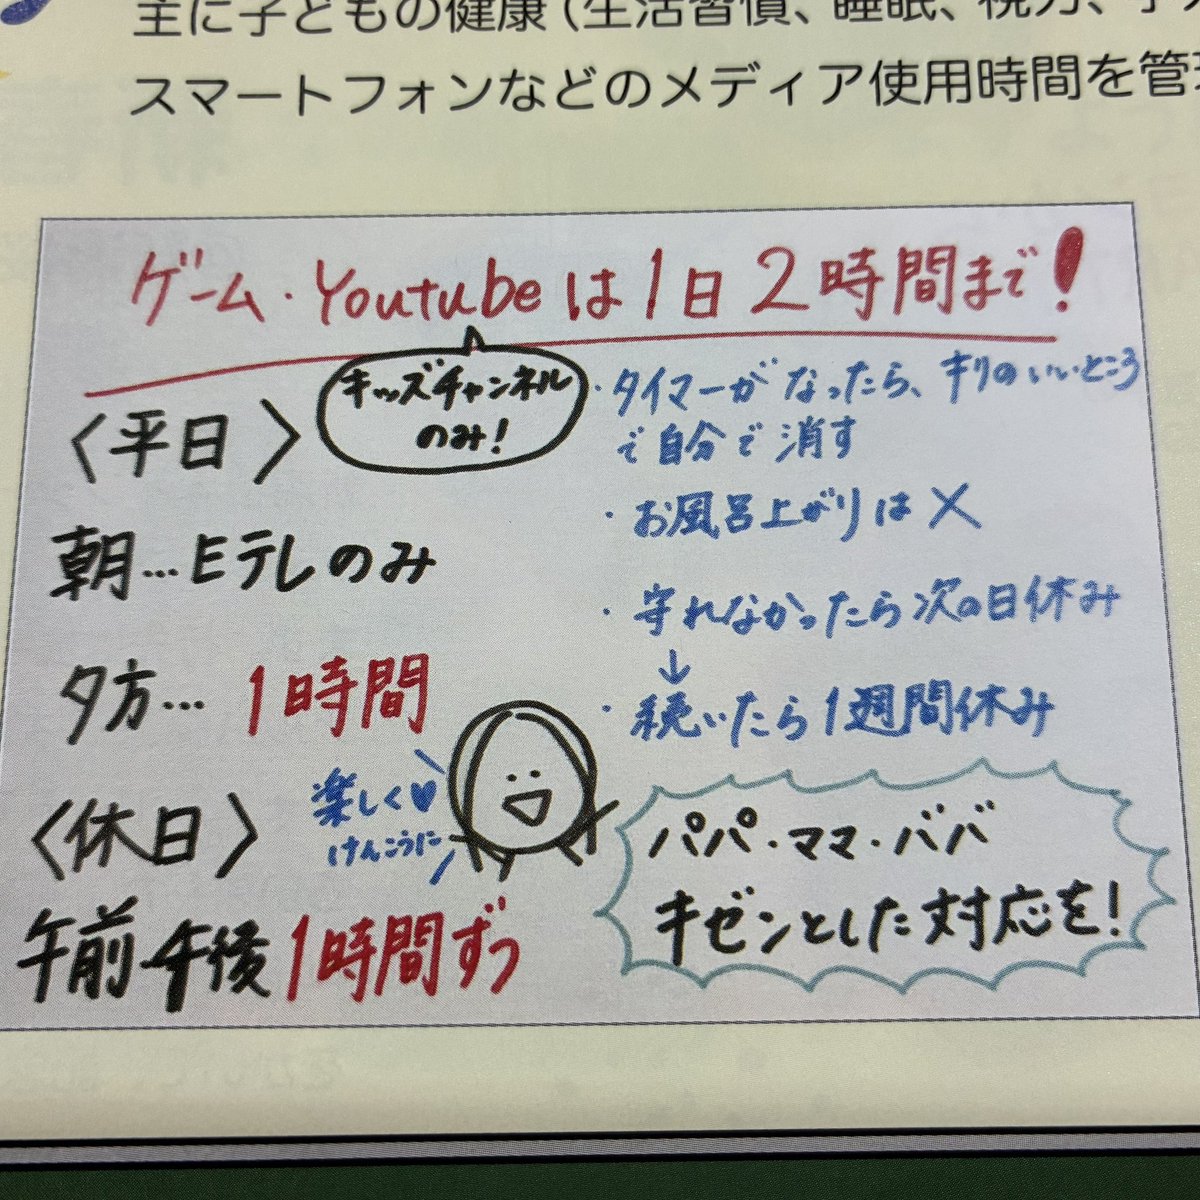 主に子どもの健康（生活習慣、睡眠、視力、
スマートフォンなどのメディア使用時間を管理
ゲーム・Youtubeは1日2時間まで!
キッズチャンネル
のみ!
〈平日〉
朝…Eテレのみ
夕方…1時間
〈休日〉
午前午後1時間ずつ
楽しく♥
けんこうに
・タイマーがなったら、キリのいいところ
で自分で消す
・お風呂上がりは×
・守れなかったら次の日休み
↓
・続いたら1週間休み
パパ・ママ・ババ
キゼンとした対応を!